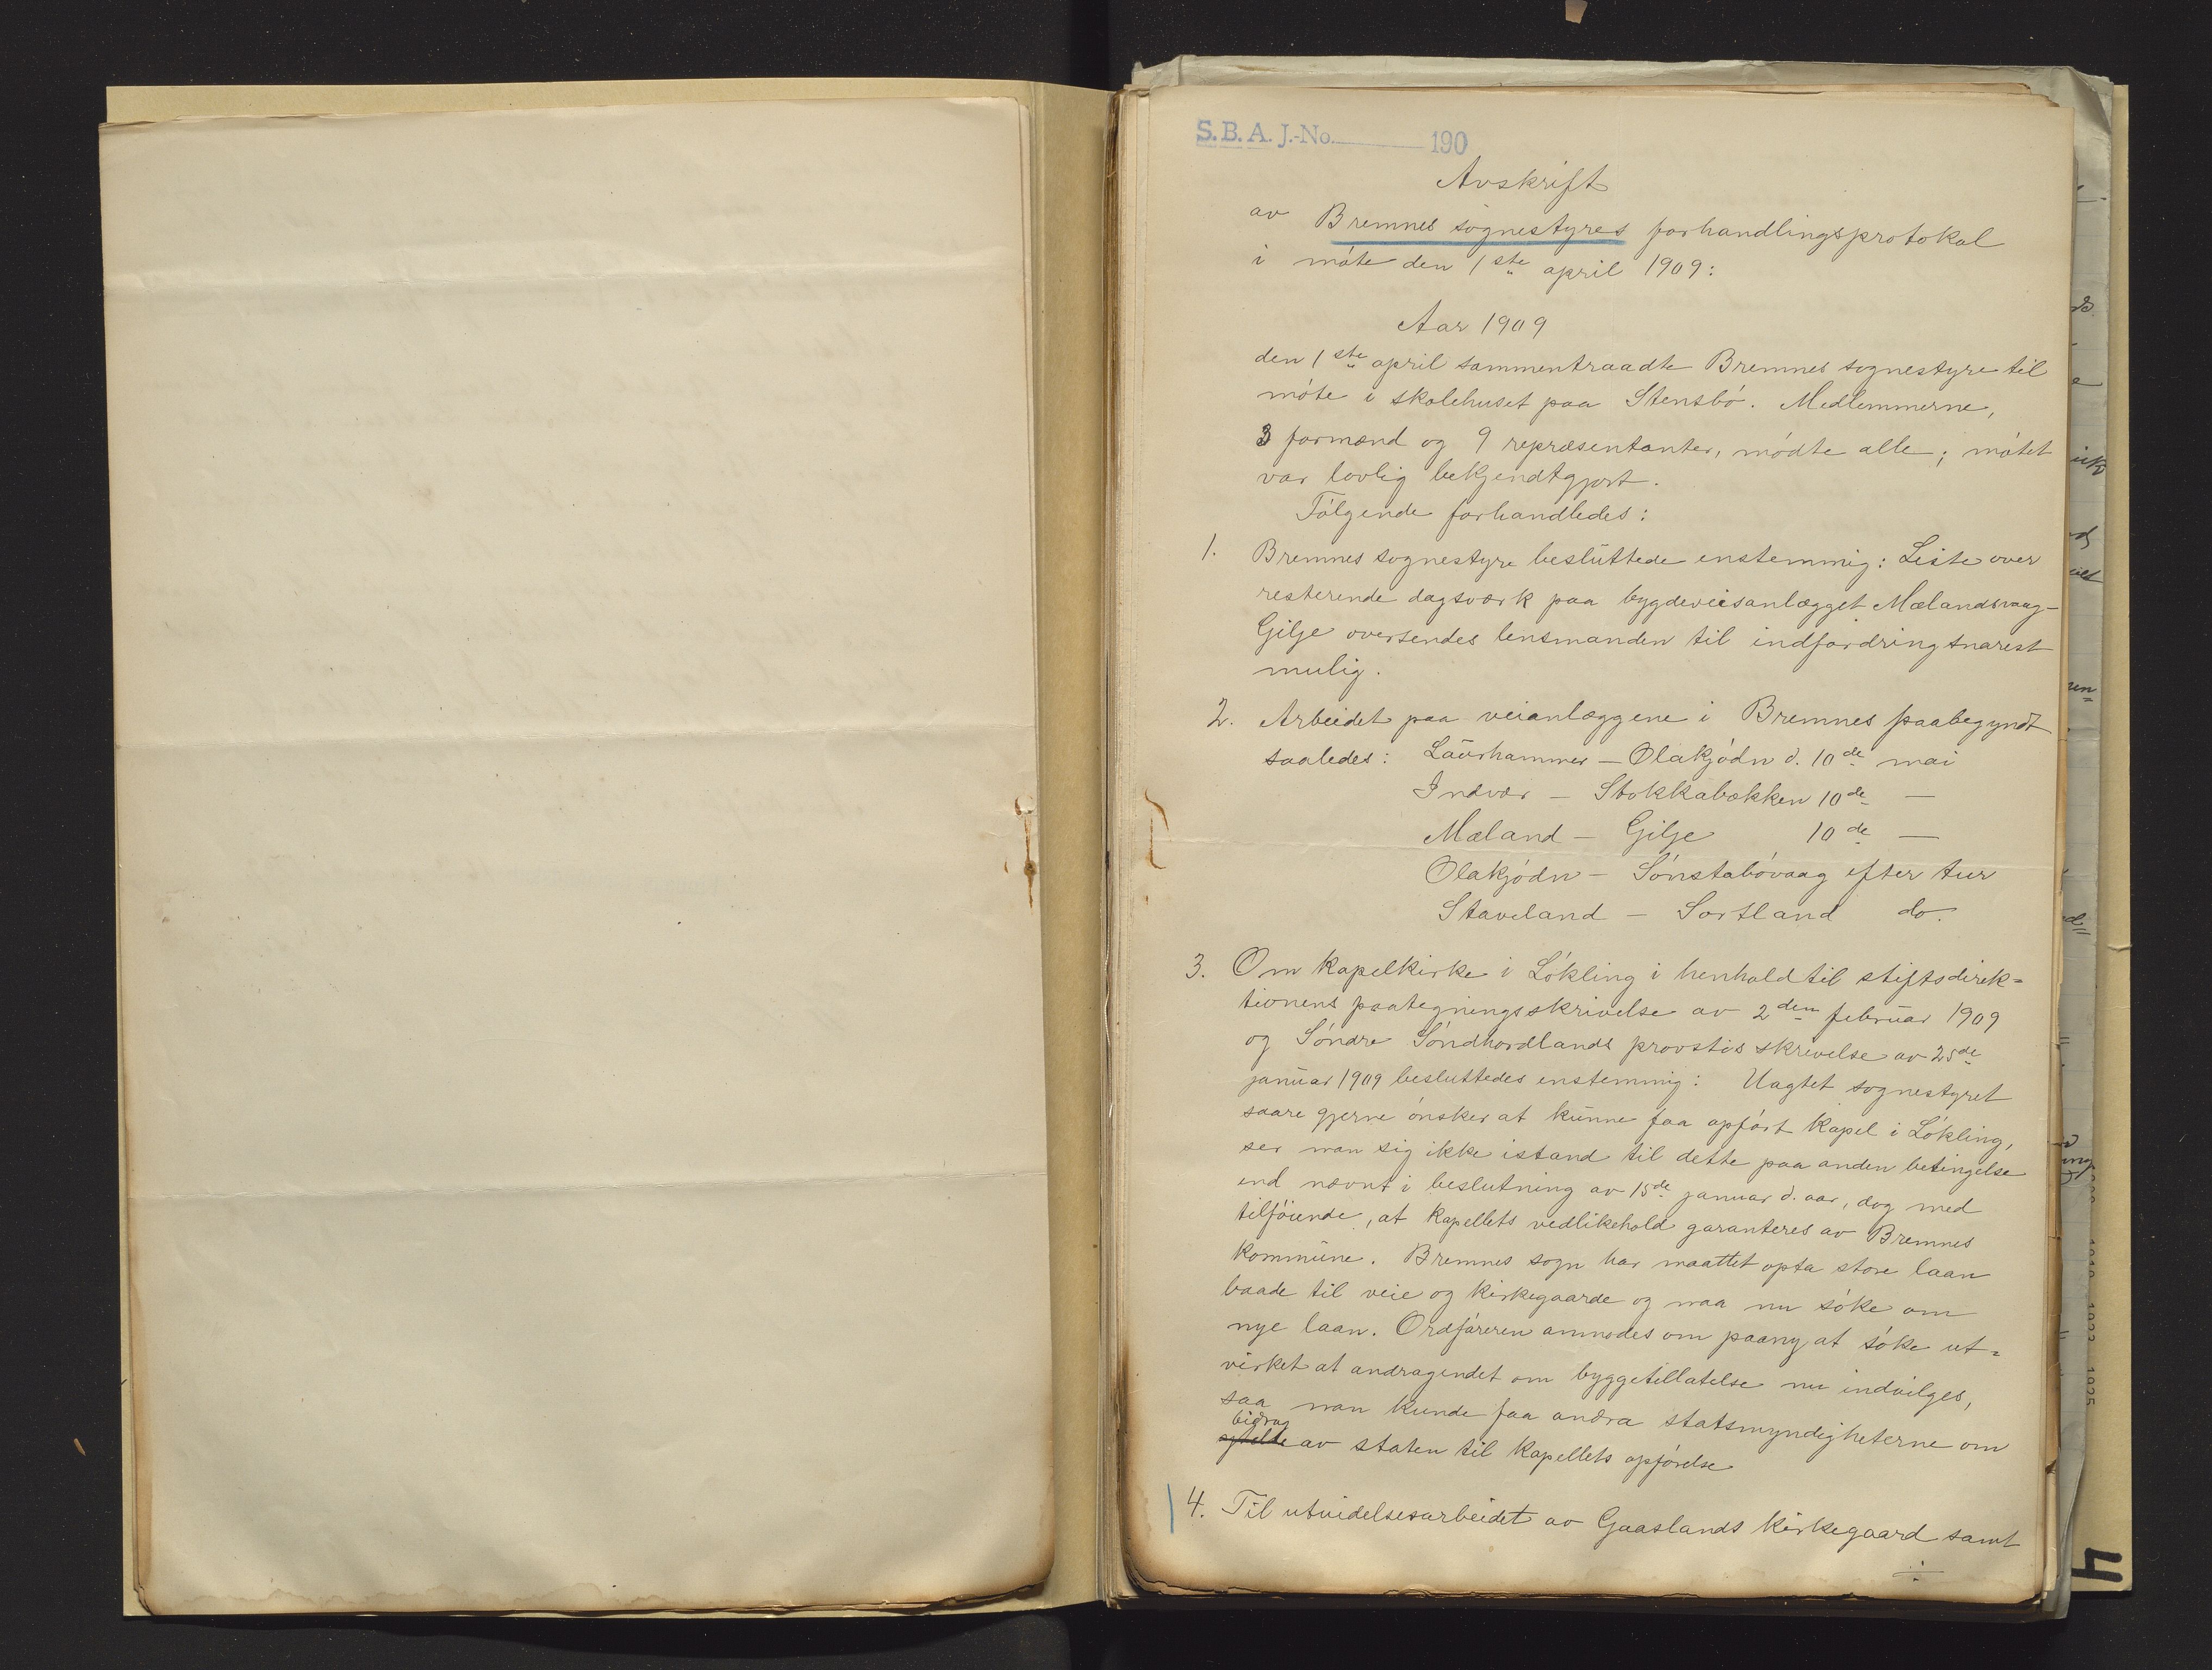 S.B.A. J.-No. 190
Avskrift
av Bremnes sognestyres forhandlingsprotokol
i móte den 1ste april 1909:
Aar 1909
den 1ste april sammentraadte Bremnes sognestyre til
móte i skolehuset paa Stensbó. Medlemmerne,
3 formænd og 9 repræsentanter, módte alle; mótet
var lovlig bekjendtgjort.
Fólgende forhandledes:
1. Bremnes sognestyre besluttede enstemmig: Liste over
resterende dagsværk paa bygdeveisanlægget Mælandsvaag-
Gilje oversendes lensmanden til indfordring snarest
mulig.
2. Arbeidet paa veianlæggene i Bremnes paabegyndt
saaledes: Laurhammer - Olakjódn d. 10de mai
Indvær - Stokkabækken 10de -
Mæland - Gilje 10de -
Olakjódn - Sónstabóvaag efter tur
Staveland - Sortland do.
3. Om kapelkirke i Lókling i henhold til stiftsdirek=
tionens paategningsskrivelse av 2den februar 1909
og Sóndre Sóndhordlands provstis skrivelse av 25de
januar 1909 besluttedes enstemmig: Uagtet sognestyret
saare gjerne ónsker at kunne faa opfórt kapel i Lókling,
ser man sig ikke istand til dette paa anden betingelse
end nævnt i beslutning av 15de januar d. aar, dog med
tilfóiende, at kapellets vedlikehold garanteres av Bremnes
kommune. Bremnes sogn har maattet opta store laan
baade til veie og kirkegaarde og maa nu sóke om
nye laan. Ordfóreren anmodes om paany at sóke ut=
virket at andragendet om byggetillatelse nu indvilges,
saa man kunde faa andra statsmyndigheterne om
bidrag
av staten til kapellets opfórelse
4. Til utvidelsesarbeidet av Gaaslands kirkegaard samt